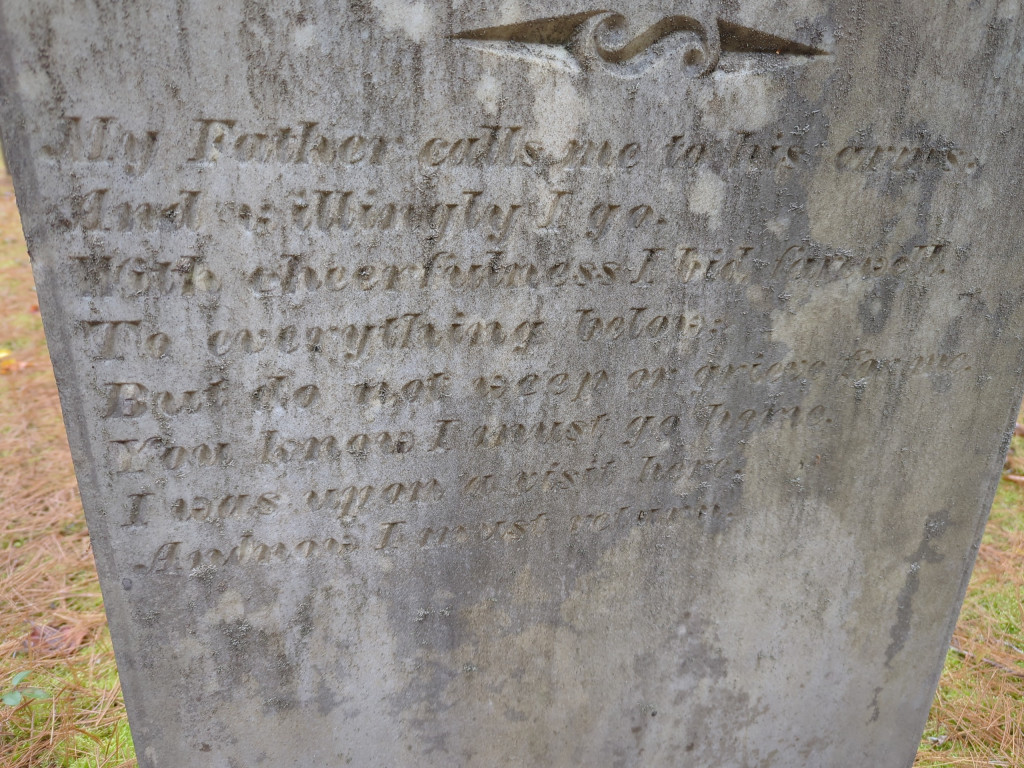 My Father calls me to his arms,
And willingly I go.
With cheerfulness I bid farwell
To everything below:
But do not weep or grieve for me.
You know I must go home.
I was upon a visit here.
And now I must return.